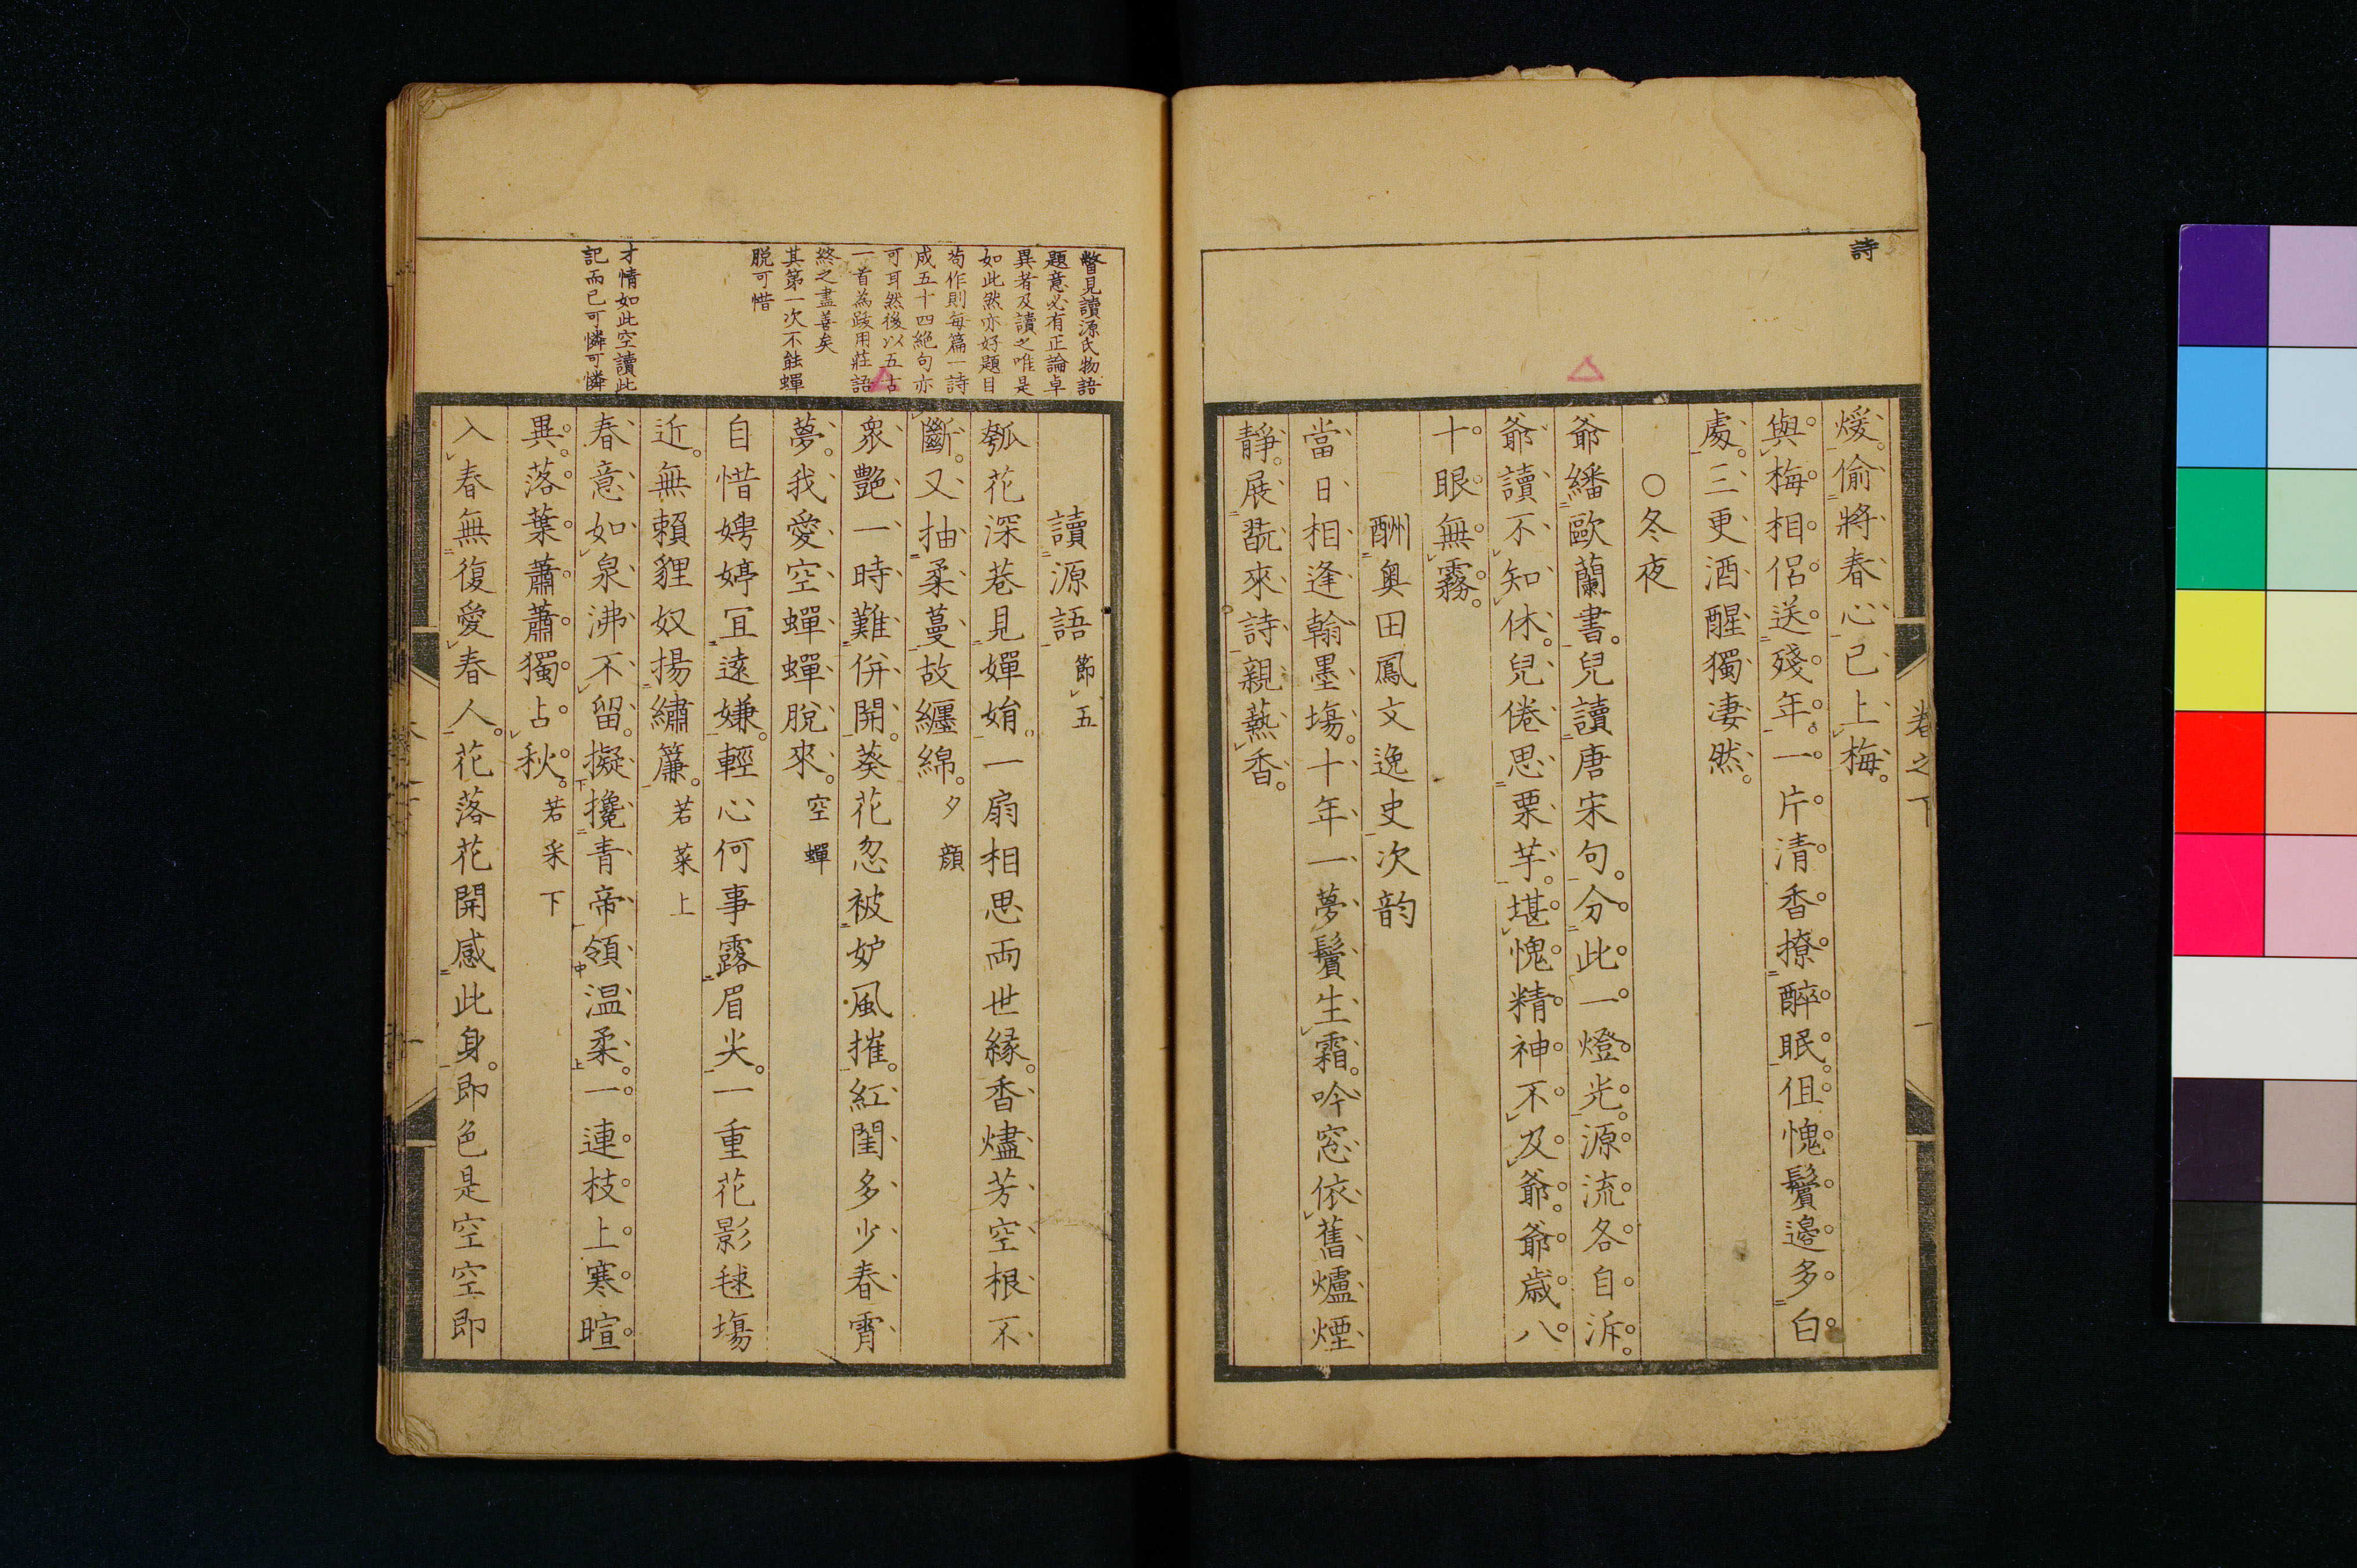 詩
煖偷將春心已上梅
與梅相侶送殘年一片清香撩醉眠伹愧鬢邊多白
處三更酒醒獨凄然
〇冬夜
爺繙歐蘭書兒讀唐宋句分此一燈光源流各自泝
爺讀不知休兒倦思栗芋堪愧精神不及爺爺歳八
十眼無霧
酬奥田鳳文逸史次韵
當日相逢翰墨塲十年一夢鬢生霜吟窓依舊爐煙
靜展翫來詩親爇香
卷之下
瞥見讀源氏物語
題意必有正論卓
異者及讀之唯是
如此然亦好題目
苟作則每篇一詩
成五十四絕句亦
可耳然後以五古
一首為跋用莊語
終之盡善矣
其第一次不能蟬
脫可惜
才情如此空讀此
記而已可憐可憐
讀源語 節五
瓠花深巷見嬋娟一扇相思両世縁香燼芳空根不
斷又抽柔蔓故纏綿 夕顔
衆艷一時難併開葵花忽被妒風摧紅閨多少春宵
夢我愛空蟬蟬脫來 空蟬
自惜娉婷冝遠嫌輕心何事露眉尖一重花影毬塲
近無賴貍奴揚繡簾 若菜上
春意如泉沸不留擬攙青帝領温柔一連枝上寒暄
異落葉蕭蕭獨占秋 若采下
入春無復愛春人花落花開感此身即色是空空即